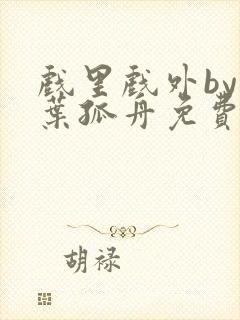 戏里戏外by
葉孤舟免費
胡禄